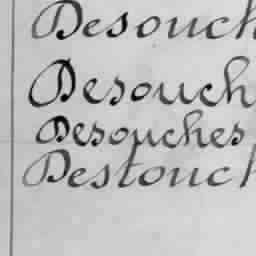 Desouch
Desouch
Desouches
Destouch